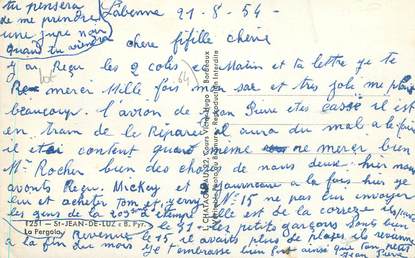 tu pensera
de me prendre
une jupe noir
quand tu viendra
Labenne 21-8-54-
chere fifille chérie
J'ai Reçu les 2 colis ce Matin et ta lettre je te
Remerci Mille fois mon sac et tres joli me plais
beaucoup. l'avion de Jean Pierre etes cassé il est
en train de le Réparer il aura du mal a le fair
il etai content quand même ne merci bien
Mr Rocher bien des choses de nous deux. hier nous
avonts Reçu Mickey et journeaux a la fois hier je
lui et acheter Tom et Jerry N° 15 ne pas lui envoyer
les gens de la 203 d'étampe elle est de la correze
le 31- les petits garçons sont bien
Revenue le 15 il avaits plus de places ils revient
a la fin du mois je t'embrasse bien fort ainsi que ton petit
Jean Pierre
1251 - St-JEAN-DE-LUZ (B. Pyr.)
La Pergola
L. CHATAGNEAU, 22, Cours Victor-Hugo - Bordeaux
Reproduction Interdite